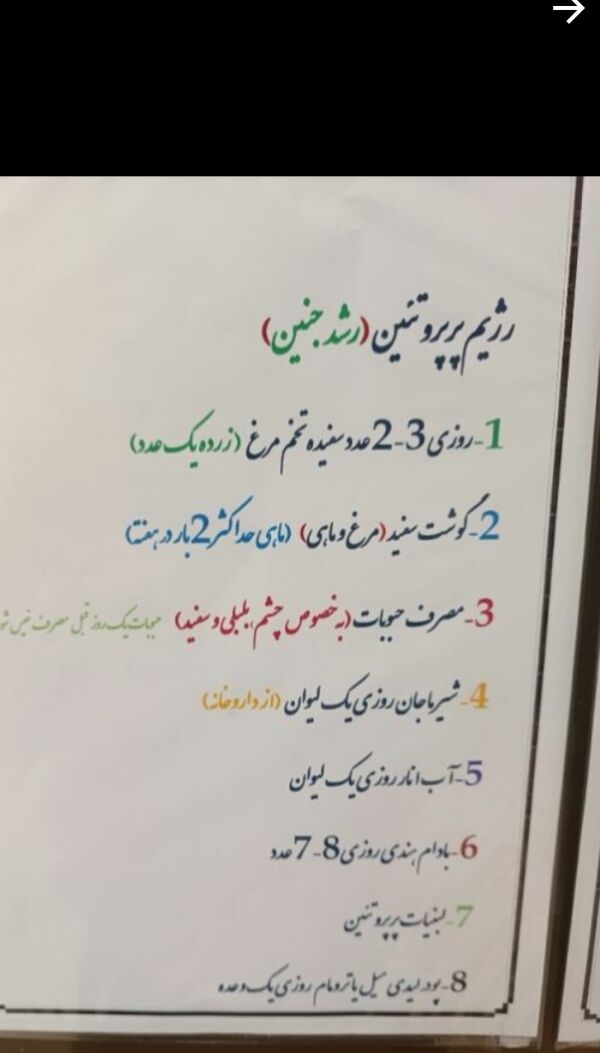 رژیم پرپروتئین (رشد جنین)
1-روزی 3-2 عدد سفیده تخم مرغ (زرده یک عدد)
2-گوشت سفید (مرغ و ماهی) (ماهی حداکثر 2 بار در هفته)
3-مصرف حبوبات (به خصوص چشم بلبلی و سفید) حبوبات یک روز قبل مصرف خیس شو
4-شیر ماجان روزی یک لیوان (از داروخانه)
5-آب انار روزی یک لیوان
6-بادام هندی روزی 8-7 عدد
7-لبنیات پرپروتئین
8-پودر لیدی میل یا ترومام روزی یک وعده